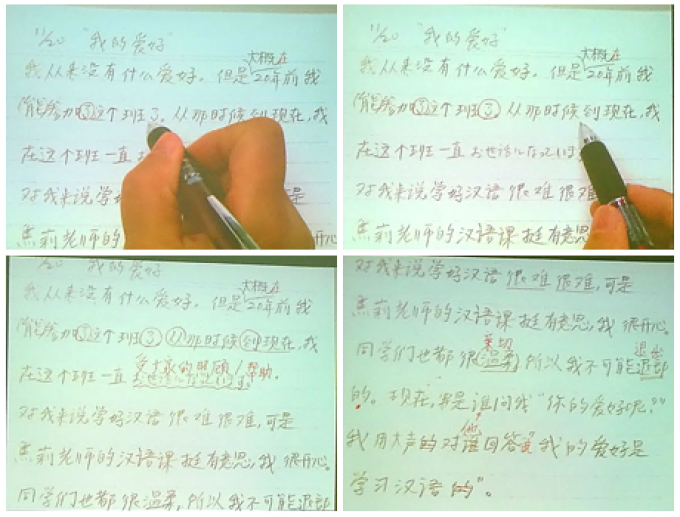 11/20 "我的爱好"
大概在
我从来没有什么爱好。但是20年前我
能参加了这个班了。从那时候到现在,我
在这个班一直
对我来说学 是
莉老师的 开心
11/20 "我的爱好"
大概在
我从来没有什么爱好。但是20年前我
能参加了这个班了 从那时候到现在,我
在这个班一直お世話になっています
对我来说学好汉语很难很难
莉老师的汉语课挺有意思
11/20 我的爱好
大概在
我从来没有什么爱好。但是20年前我
能参加了这个班了 从那时候到现在,我
受大家的照顾/帮助.
在这个班一直お世話になっています.
对我来说学好汉语很难很难,可是
莉老师的汉语课挺有意思,我很开心。
同学们也都很温柔,所以我不可能退部
对我来说学好汉语很难很难,可是
莉老师的汉语课挺有意思,我很开心。
亲切 退出
同学们也都很温柔 所以我不可能退部
的。现在,要是谁问我"你的爱好呢?"
他
我用大声的对谁回答"我的爱好是
学习汉语的"。